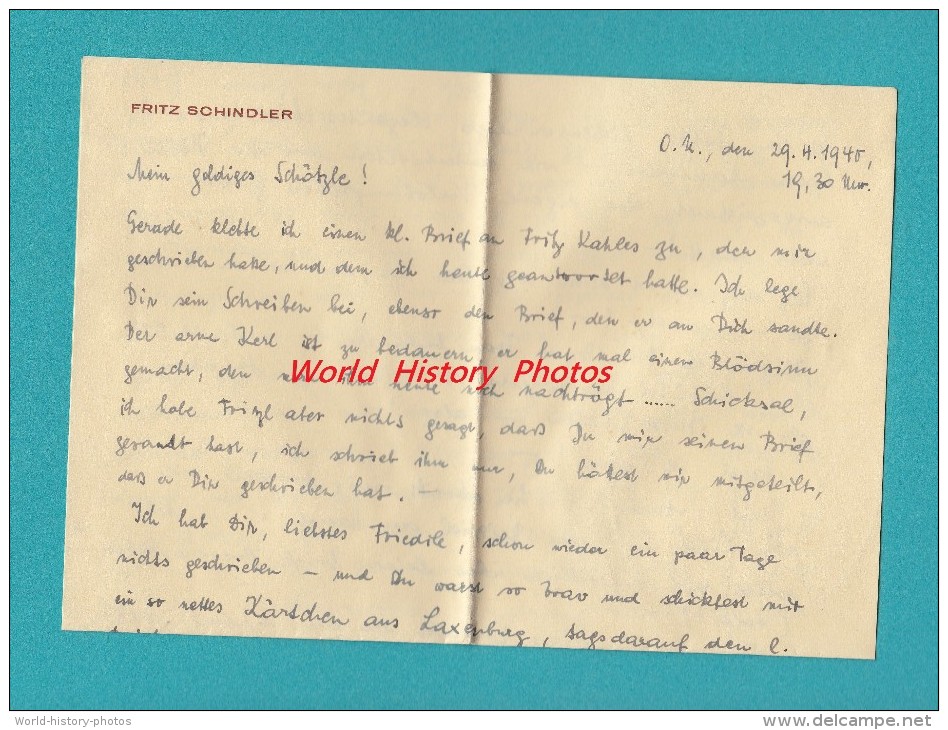 FRITZ SCHINDLER
O.U., den 29.4.1940,
19,30 Uhr.
Mein goldiges Schätzle!
Gerade klebte ich einen kl. Brief an Fritz Kahles zu, der mir
geschrieben hatte, und dem ich heute geantwortet hatte. Ich lege
Dir sein Schreiben bei, ebenso den Brief, den er an Dich sandte.
Der arme Kerl ist zu bedauern, er hat mal einen Blödsinn
World History Photos
gemacht, den man ihm heute noch nachträgt ...... Schicksal,
ich habe Fritzl aber nichts gesagt, daß Du mir seinen Brief
gesandt hast, ich schrieb ihm nur, Du hättest mir mitgeteilt,
daß er Dir geschrieben hat. —
Ich hab Dir, liebstes Friedile, schon wieder ein paar Tage
nichts geschrieben — und Du warst so brav und schicktest mir
ein so nettes Kärtchen aus Laxenburg, tagsdarauf den l.
World-history-photos
www.delcampe.net